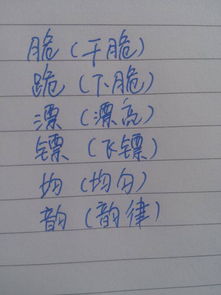 脆（干脆）
跪（下脆）
漂（漂亮）
镖（飞镖）
均（均匀）
韵（韵律）